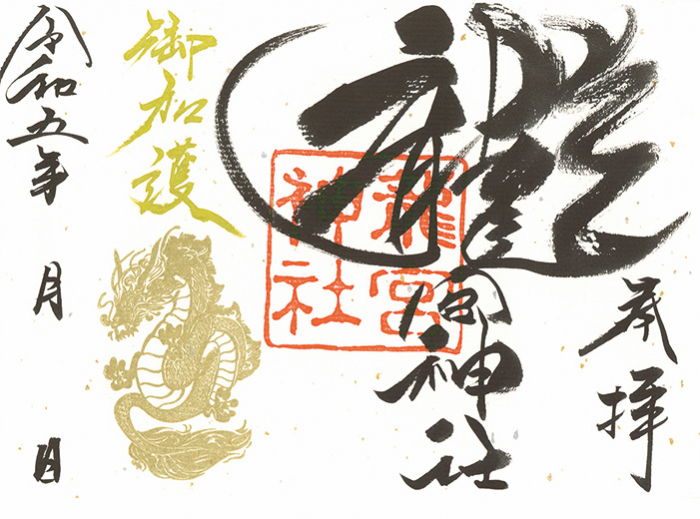 奉拝
龍宮神社
龍宮
神社
御加護
令和五年 月 日